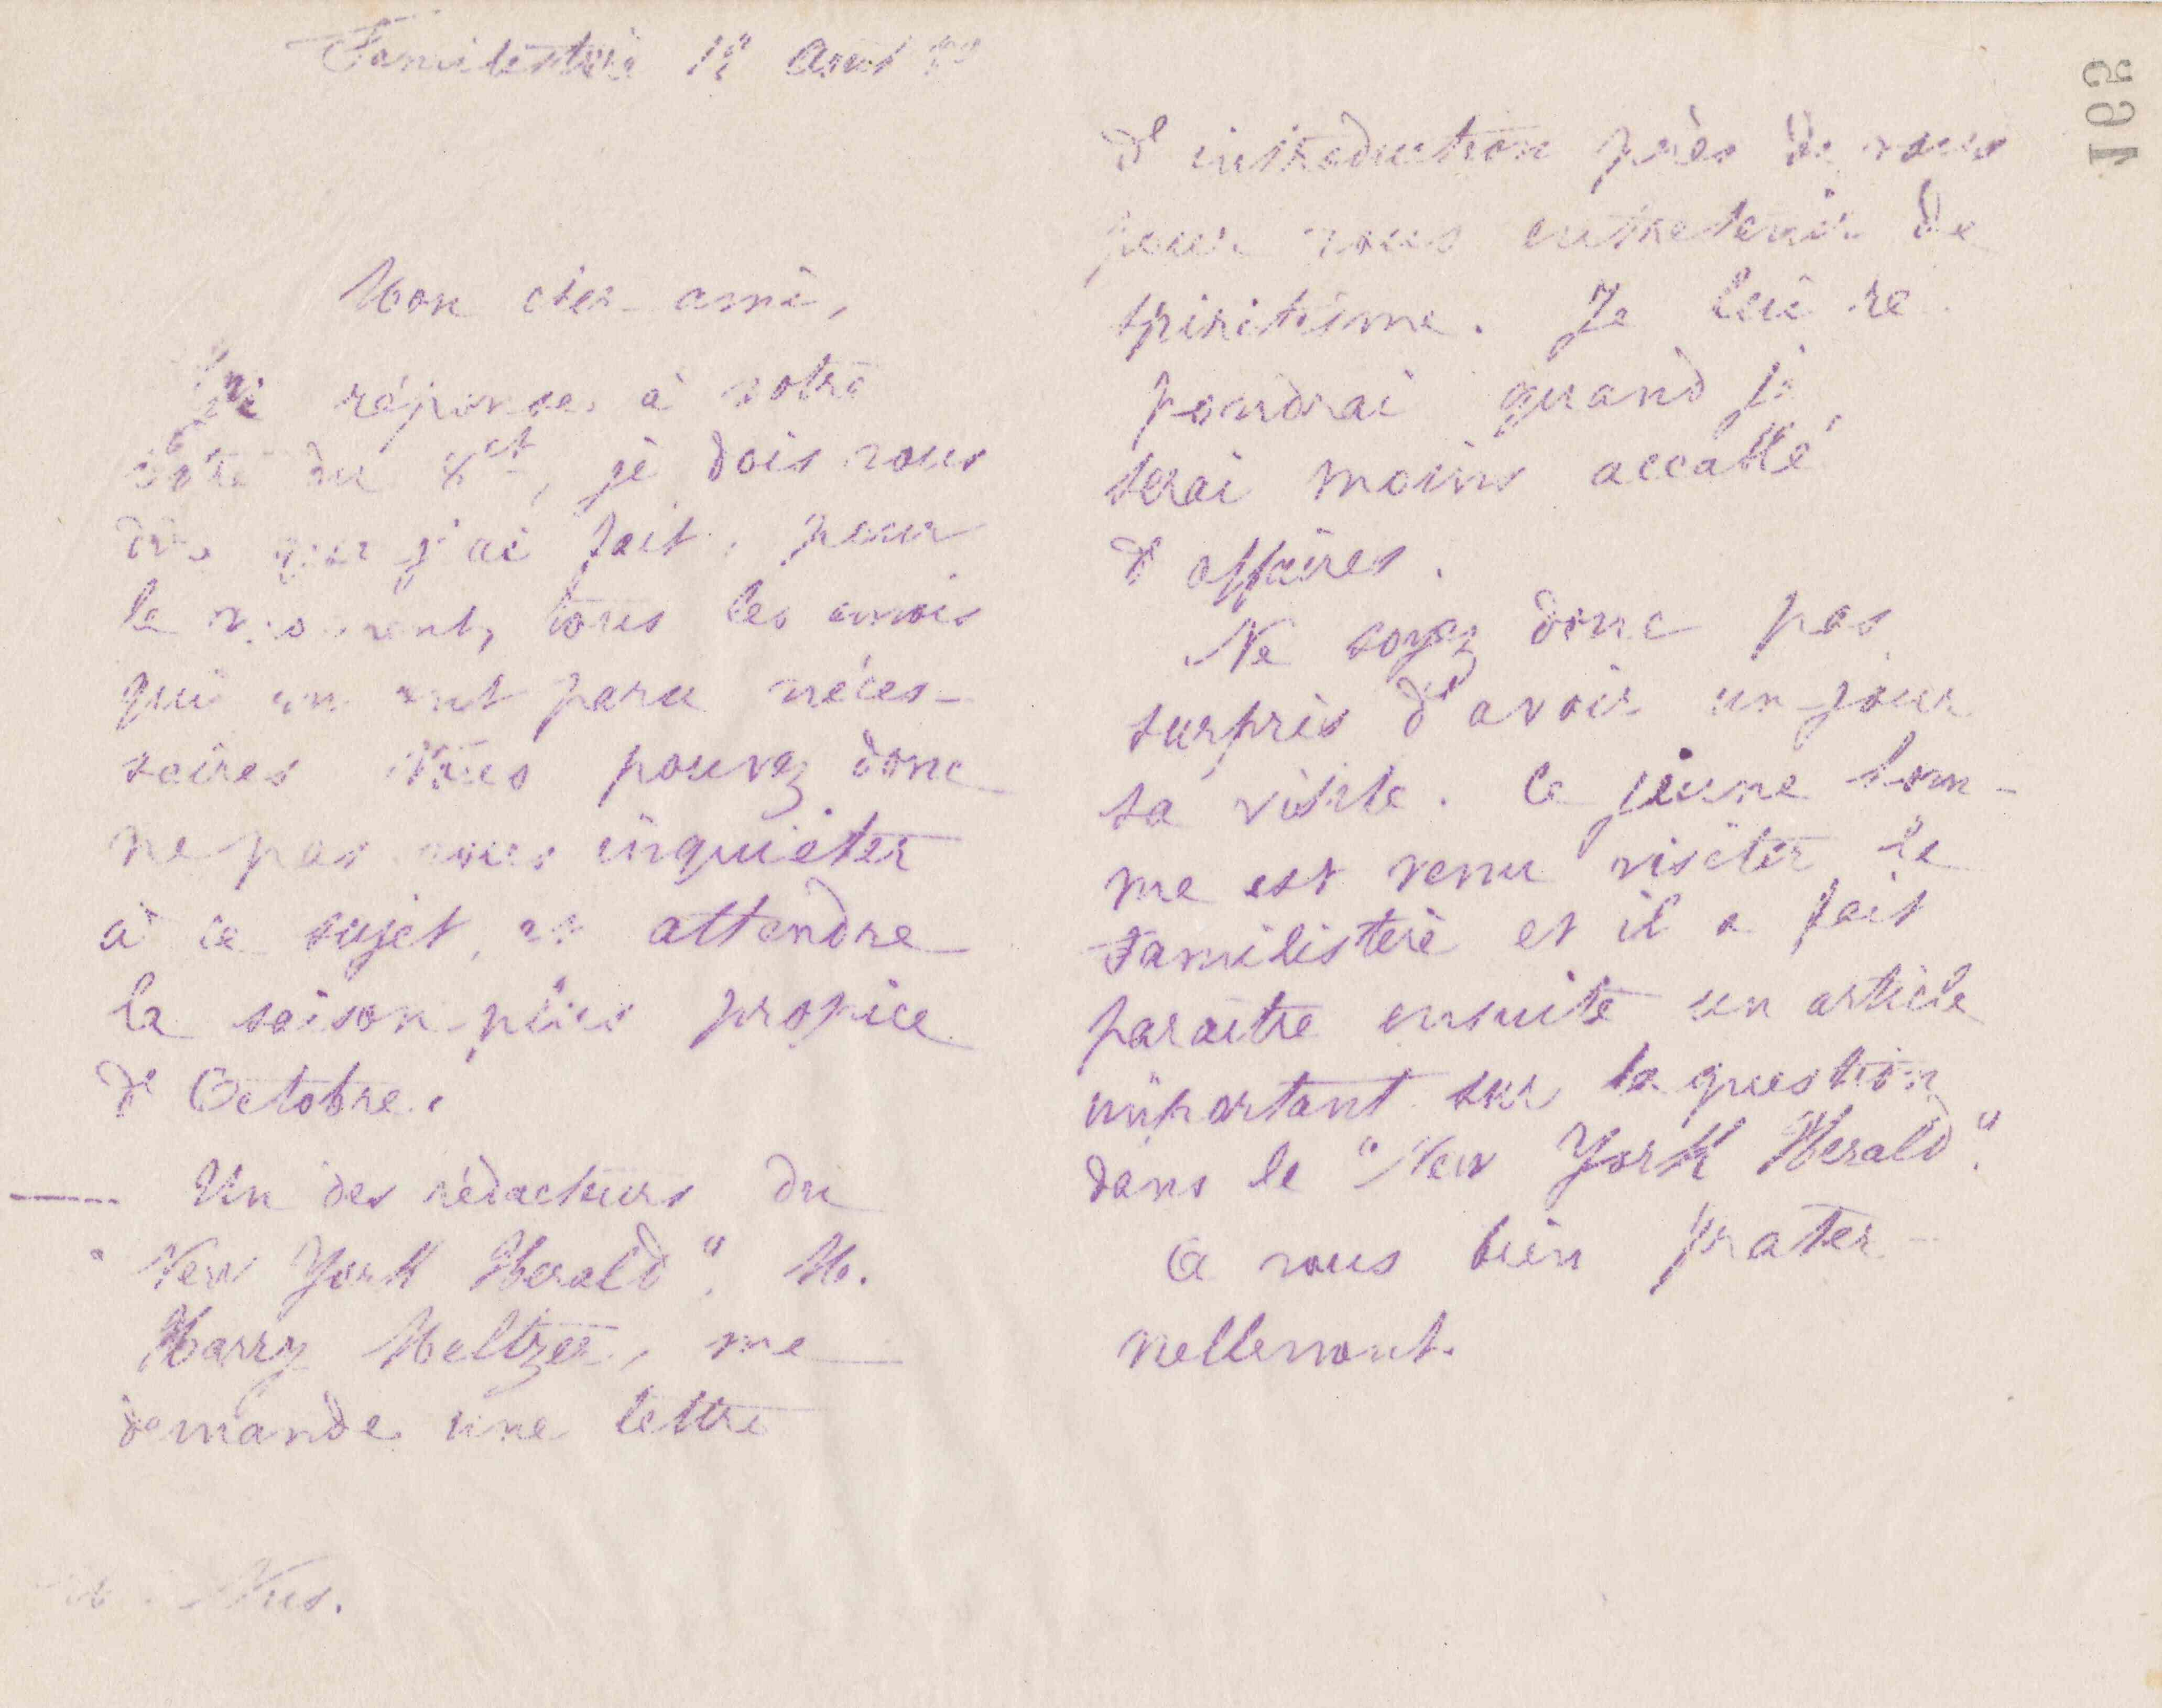 Familistère 12 Août
Mon cher ami,
En réponse à votre
lettre du 8 ct, je dois vous
dire que j'ai fait, pour
le moment, tous les envois
qui m'ont paru néces-
saires. Vous pouvez donc
ne pas vous inquiéter
à ce sujet, et attendre
la saison plus propice
d'Octobre.
Un des rédacteurs du
"New York Herald", M.
Harry Meltzer, me
demande une lettre
M. Nus.
165
d'introduction près de vous
pour vous entretenir de
spiritisme. Je lui ré
pondrai quand je
serai moins accablé
d'affaires.
Ne soyez donc pas
surpris d'avoir un jour
sa visite. Ce jeune hom-
me est venu visiter le
Familistère et il a fait
paraître ensuite un article
important sur la question
dans le "New York Herald".
A vous bien frater-
nellement.